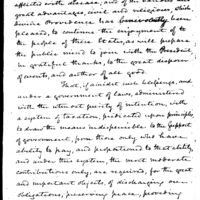 affected with disease; and of the various and
great advantages, civil and religious, which
divine Providence has been
pleased, to continue the enjoyment of to
the people of these States, as will prepare
the public mind to join with the President,
in grateful thanks, to the great disposer
of events, and author of all good.
That, if amidst such blessings, and
under a government of laws, administered
with the utmost purity of intention, with
a system of taxation, predicated upon principles
to draw the means indispensible to the support
of government, from those only who have
ability to pay, and proportioned to that ability,
and under this system, the most moderate
contributions only, are required, for the great
and important objects, of discharging our
obligations, preserving peace, providing